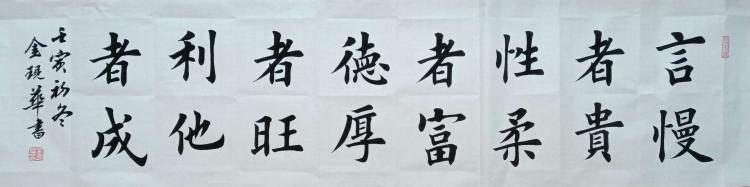 言慢
者貴
性柔
者富
德厚
者旺
利他
者成
壬寅初冬
金琨華書